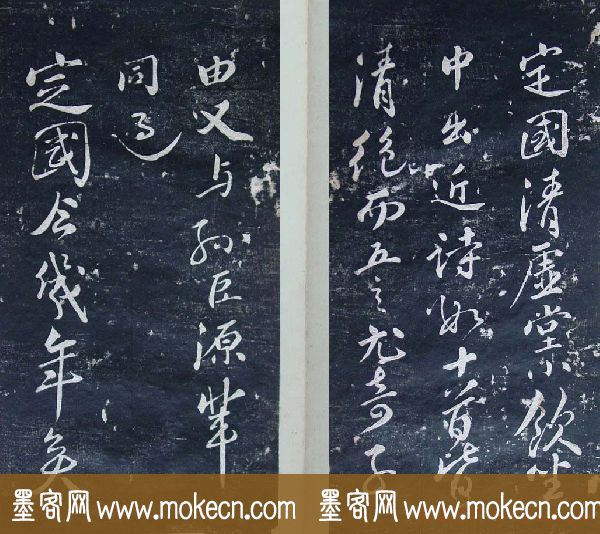 定國清虛堂小飲坐
中出近詩數十首皆
清絕而五言尤奇子
由又与孫巨源輩
同過
定國今幾年矣
墨客网 www.mokecn.com 墨客网 www.mokecn.com